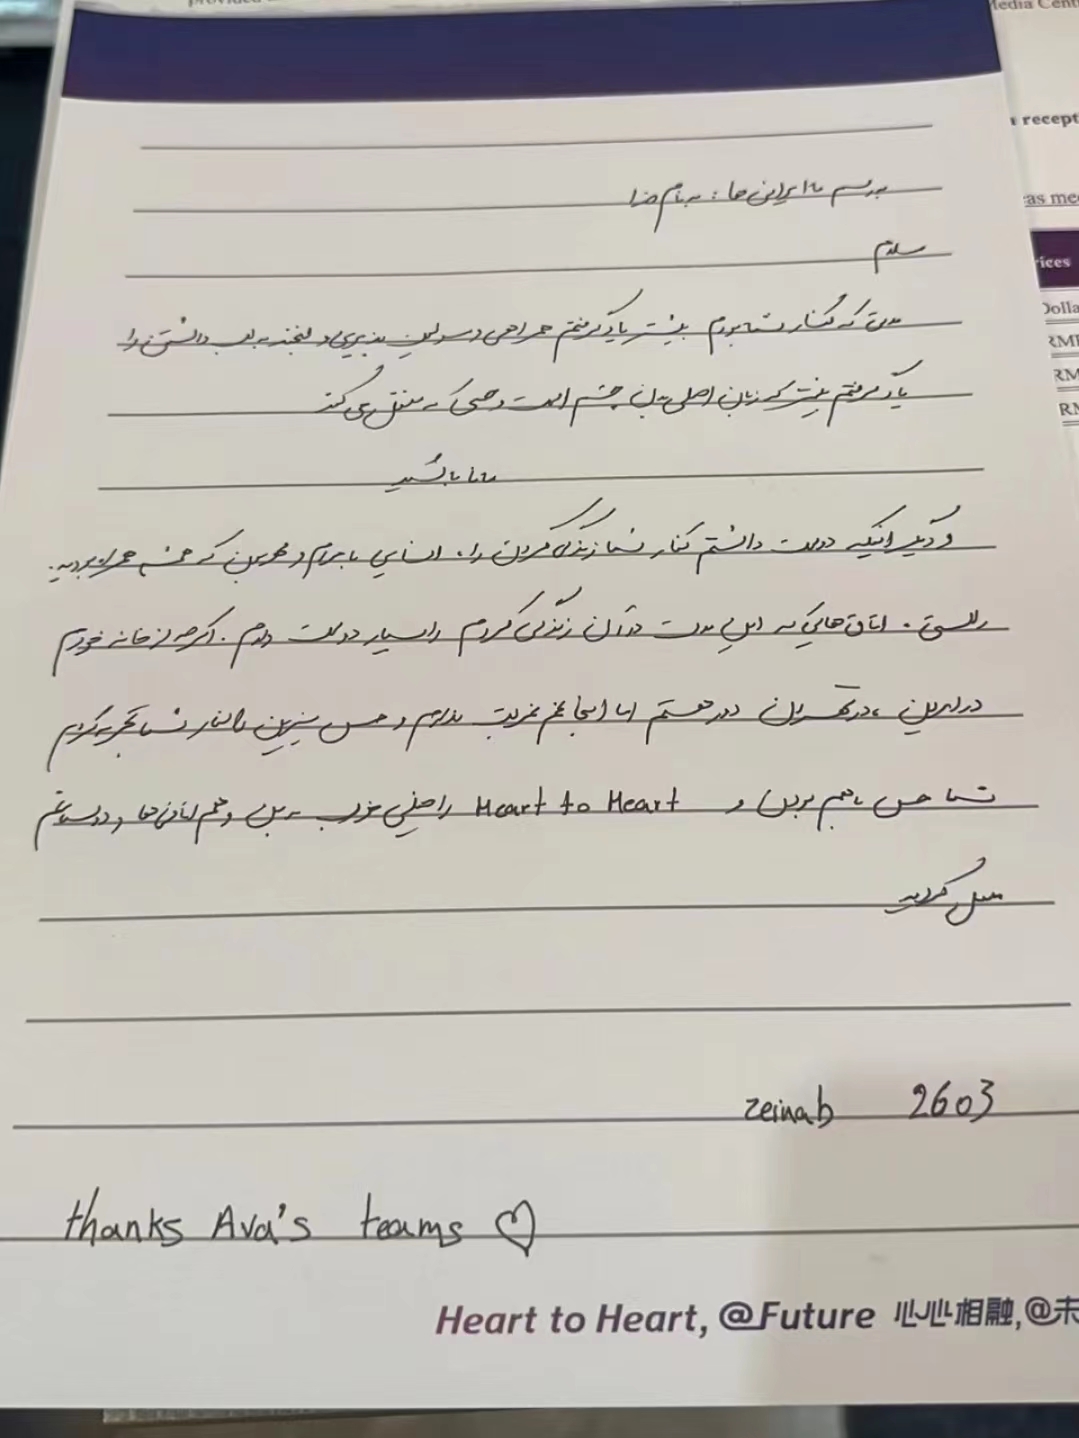 provided
Media Cent
recept
as me
به رسم ما ایرانی ها : به نام خدا
سلام
rices
Dolla
مدتی که کنار شما بودم بیشتر یاد گرفتم همراهی و مسولیت پذیری و لبخند به لب داشتن را
RM
یاد گرفتم بیشتر که زبان اصلی بدن چشم است و حسی که منتقل می کند
RM
RM
مانا باشید
و دیگر اینکه دوست داشتم کنار شما زندگی کردن را. انسانهای با مرام و مهربون که همیشه همراه بودید.
راستی . اتاق هایی که این مدت در آن زندگی کردم را بسیار دوست دارم . اگرچه از خانه خودم
در ایران ، در تهران دور هستم اما اینجا غم غربت ندارم و حس شیرین را کنار شما تجربه کردم
شما حس با هم بودن و Heart to Heart را خیلی خوب به من و هم اتاقی ها و دوستانم
منتقل کردید
zeinab 2603
thanks Ava's teams ♡
Heart to Heart, @Future 心心相融,@未